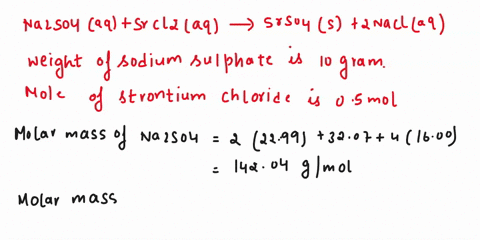 Na2SO4 (aq) + SrCl2 (aq) → SrSO4 (s) + 2NaCl (aq)
weight of sodium sulphate is 10 gram.
Mole of strontium chloride is 0.5 mol
Molar mass of Na2SO4 = 2 (22.99) + 32.07 + 4 (16.00)
= 142.04 g/mol
Molar mass